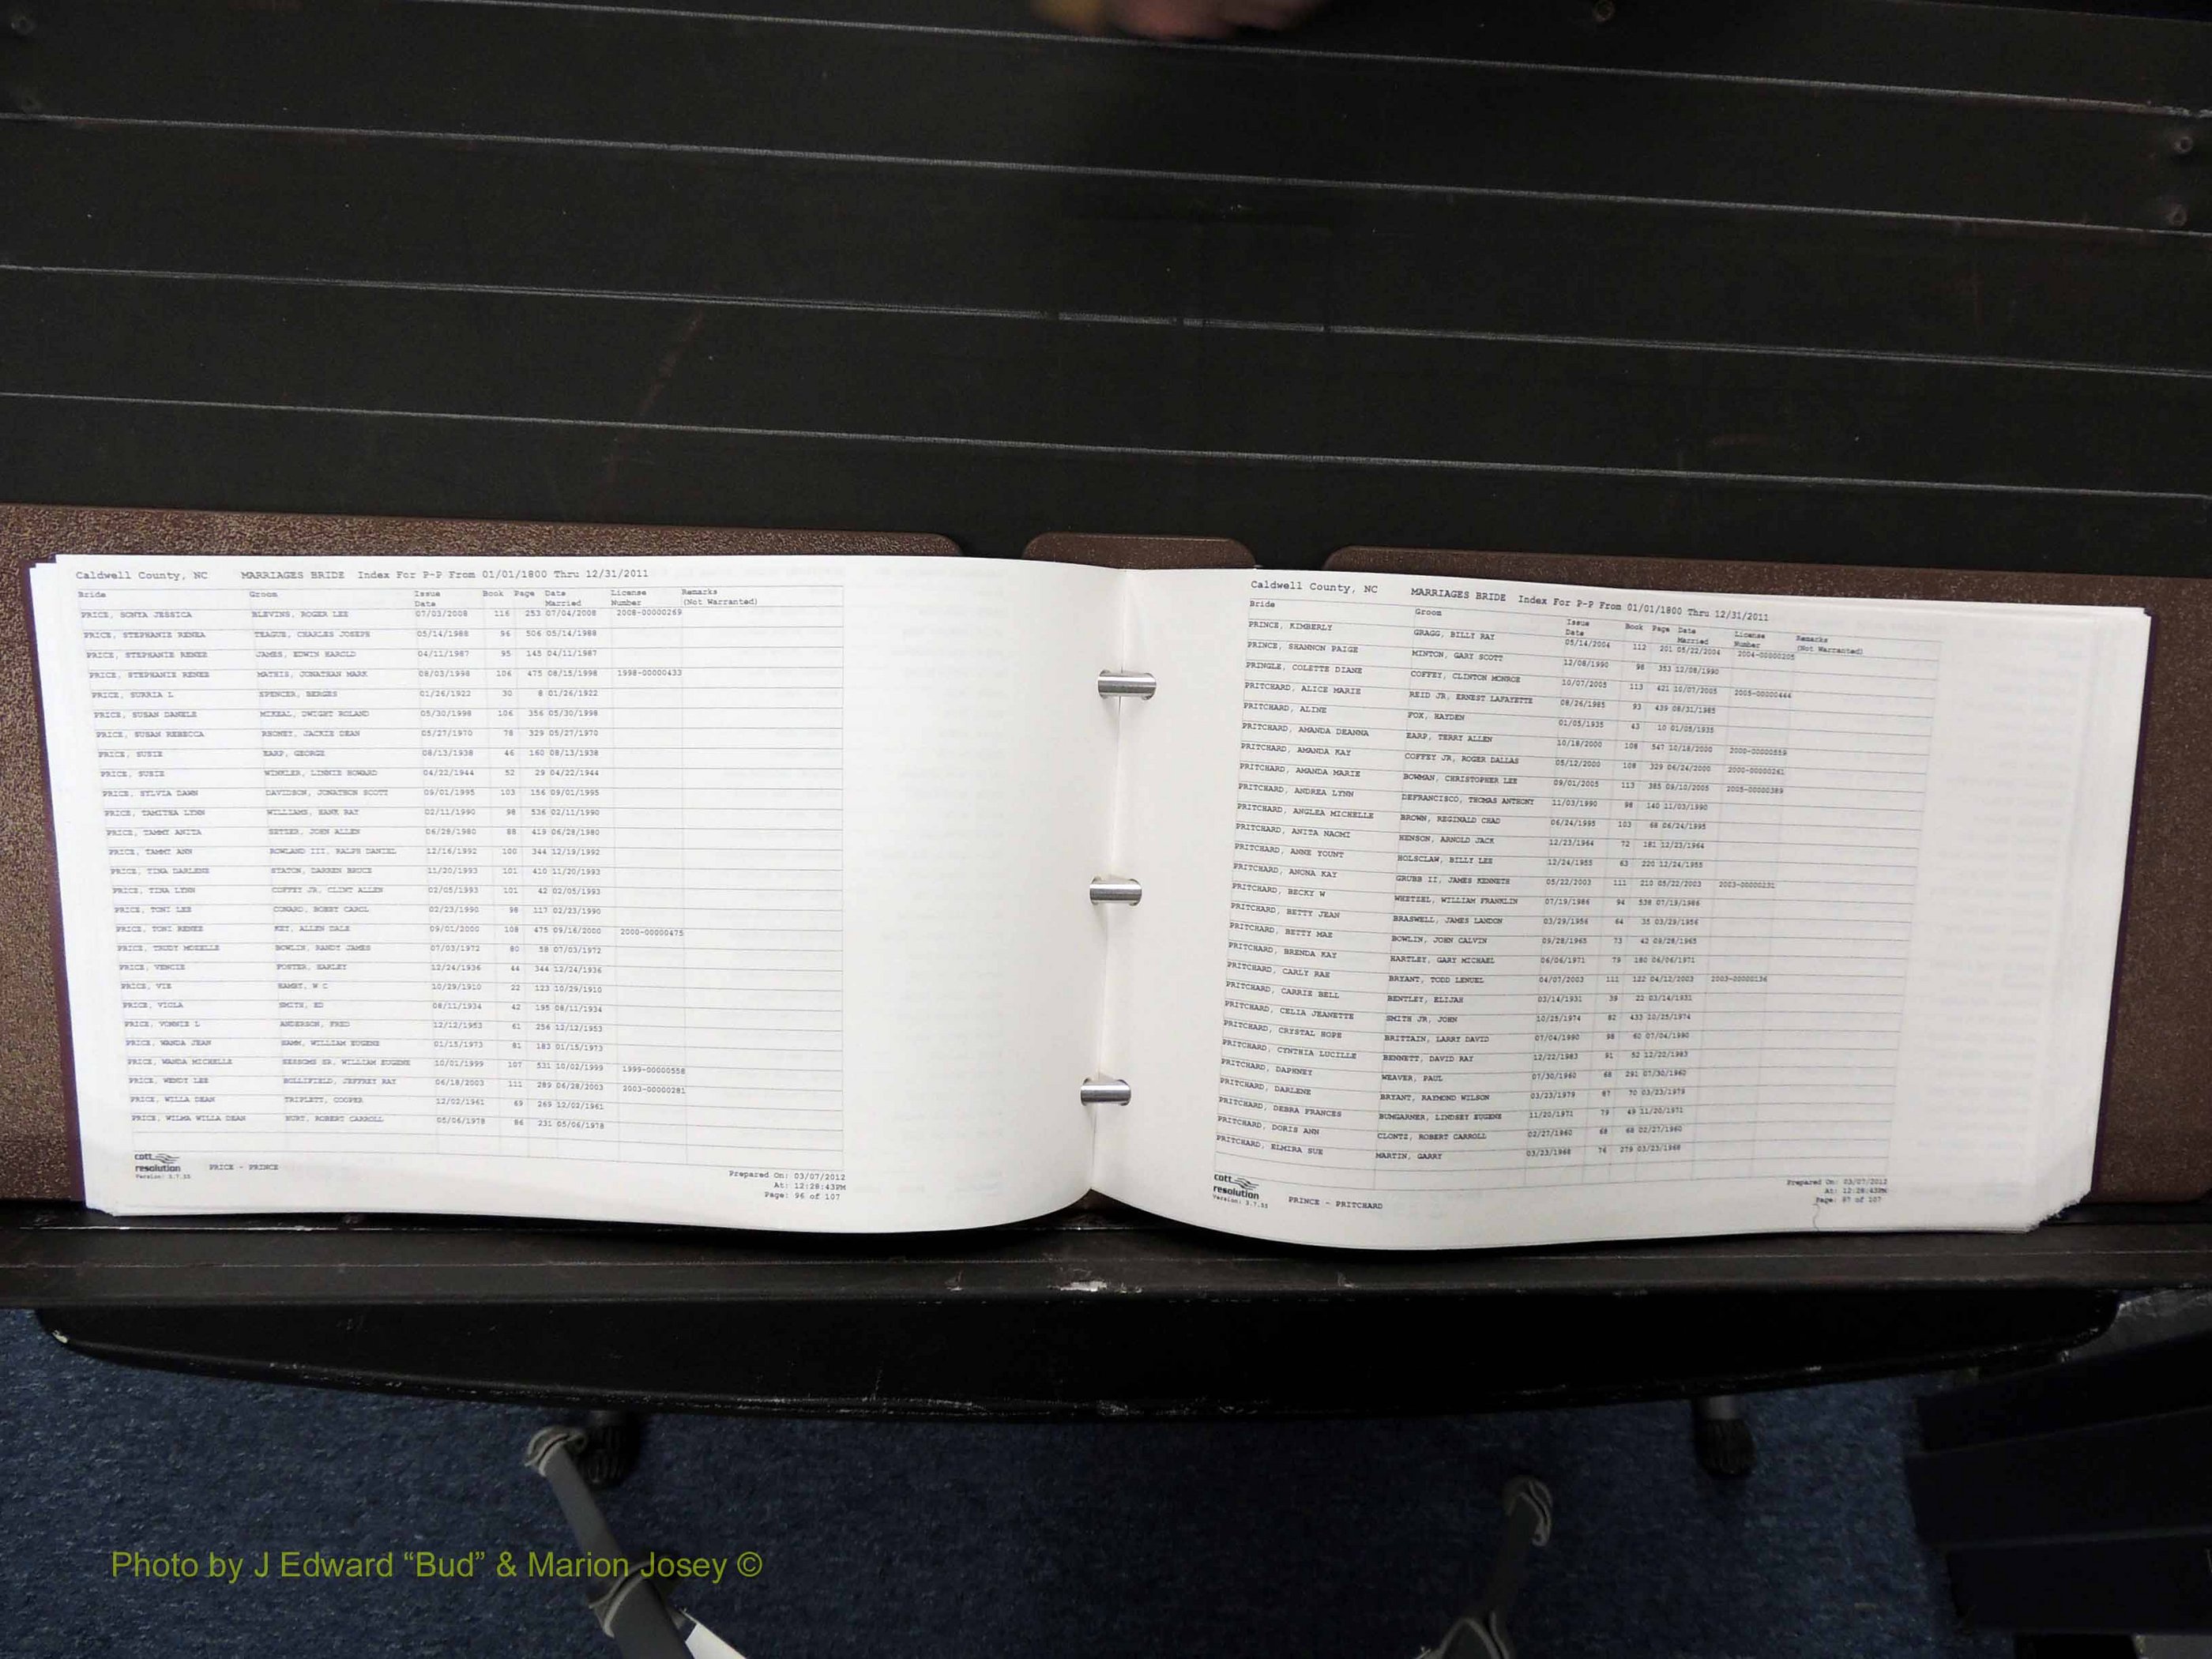 Caldwell County, NC MARRIAGES BRIDE Index For P-P From 01/01/1800 Thru 12/31/2011
Bride Groom Issue Date Book Page Date Married License Number Remarks (Not Warranted)
PRICE, SONYA JESSICA BLEVINS, ROGER LEE 07/03/2008 116 253 07/04/2008 2008-00000269
PRICE, STEPHANIE RENEA TEAGUE, CHARLES JOSEPH 05/14/1988 96 506 05/14/1988
PRICE, STEPHANIE RENEE JAMES, EDWIN HAROLD 04/11/1987 95 145 04/11/1987
PRICE, STEPHANIE RENEE MATHIS, JONATHAN MARK 08/03/1998 106 475 08/15/1998 1998-00000433
PRICE, SURRIA L SPENCER, BERGES 01/26/1922 30 8 01/26/1922
PRICE, SUSAN DANELE MCNEAL, DWIGHT ROLAND 05/30/1998 106 356 05/30/1998
PRICE, SUSAN REBECCA RHONEY, JACKIE DEAN 05/27/1970 78 329 05/27/1970
PRICE, SUSIE EARP, GEORGE 08/13/1938 46 160 08/13/1938
PRICE, SUSIE WINKLER, LINNIE HOWARD 04/22/1944 52 29 04/22/1944
PRICE, SYLVIA DAWN DAVIDSON, JONATHON SCOTT 09/01/1995 103 156 09/01/1995
PRICE, TAMITHA LYNN WILLIAMS, HANK RAY 02/11/1990 98 536 02/11/1990
PRICE, TAMMY ANITA SETZER, JOHN ALLEN 06/28/1980 88 419 06/28/1980
PRICE, TAMMY ANN ROWLAND III, RALPH DANIEL 12/16/1992 100 344 12/19/1992
PRICE, TINA DARLENE STATON, DARREN BRUCE 11/20/1993 101 410 11/20/1993
PRICE, TINA LYNN COFFEY JR, CLINT ALLEN 02/05/1993 101 42 02/05/1993
PRICE, TONI LEE CONARD, BOBBY CAROL 02/23/1990 98 117 02/23/1990
PRICE, TONI RENEE KEY, ALLEN DALE 09/01/2000 108 475 09/16/2000 2000-00000475
PRICE, TRUDY MOZELLE BOWLIN, RANDY JAMES 07/03/1972 80 58 07/03/1972
PRICE, VENCIE FOSTER, EARLEY 12/24/1936 44 344 12/24/1936
PRICE, VIE HAMBY, W C 10/29/1910 22 123 10/29/1910
PRICE, VIOLA SMITH, ED 08/11/1934 42 195 08/11/1934
PRICE, VONNIE L ANDERSON, FRED 12/12/1953 61 256 12/12/1953
PRICE, WANDA JEAN HAMM, WILLIAM EUGENE 01/15/1973 81 183 01/15/1973
PRICE, WANDA MICHELLE SESSOMS SR, WILLIAM EUGENE 10/01/1999 107 531 10/02/1999 1999-00000558
PRICE, WENDY LEE HOLLIFIELD, JEFFREY RAY 06/18/2003 111 289 06/28/2003 2003-00000281
PRICE, WILLA DEAN TRIPLETT, COOPER 12/02/1961 69 269 12/02/1961
PRICE, WILMA WILLA DEAN BURT, ROBERT CARROLL 05/06/1978 86 231 05/06/1978
cott
resolution PRICE - PRINCE
Version: 3.7.55
Prepared On: 03/07/2012
At: 12:28:43PM
Page: 96 of 107
Caldwell County, NC MARRIAGES BRIDE Index For P-P From 01/01/1800 Thru 12/31/2011
Bride Groom Issue Date Book Page Date Married License Number Remarks (Not Warranted)
PRINCE, KIMBERLY GRAGG, BILLY RAY 05/14/2004 112 201 05/22/2004 2004-00000205
PRINCE, SHANNON PAIGE MINTON, GARY SCOTT 12/08/1990 98 353 12/08/1990
PRINGLE, COLETTE DIANE COFFEY, CLINTON MONROE 10/07/2005 113 421 10/07/2005 2005-00000444
PRITCHARD, ALICE MARIE REID JR, ERNEST LAFAYETTE 08/26/1985 93 439 08/31/1985
PRITCHARD, ALINE FOX, HAYDEN 01/05/1935 43 10 01/05/1935
PRITCHARD, AMANDA DEANNA EARP, TERRY ALLEN 10/18/2000 108 547 10/18/2000 2000-00000559
PRITCHARD, AMANDA KAY COFFEY JR, ROGER DALLAS 05/12/2000 108 329 06/24/2000 2000-00000261
PRITCHARD, AMANDA MARIE BOWMAN, CHRISTOPHER LEE 09/01/2005 113 385 09/10/2005 2005-00000389
PRITCHARD, ANDREA LYNN DEFRANCISCO, THOMAS ANTHONY 11/03/1990 98 140 11/03/1990
PRITCHARD, ANGLEA MICHELLE BROWN, REGINALD CHAD 06/24/1995 103 68 06/24/1995
PRITCHARD, ANITA NAOMI HENSON, ARNOLD JACK 12/23/1964 72 181 12/23/1964
PRITCHARD, ANNE YOUNT HOLSCLAW, BILLY LEE 12/24/1955 63 220 12/24/1955
PRITCHARD, ANONA KAY GRUBB II, JAMES KENNETH 05/22/2003 111 210 05/22/2003 2003-00000231
PRITCHARD, BECKY W WHETZEL, WILLIAM FRANKLIN 07/19/1986 94 538 07/19/1986
PRITCHARD, BETTY JEAN BRASWELL, JAMES LANDON 03/29/1956 64 35 03/29/1956
PRITCHARD, BETTY MAE BOWLIN, JOHN CALVIN 09/28/1965 73 42 09/28/1965
PRITCHARD, BRENDA KAY HARTLEY, GARY MICHAEL 06/06/1971 79 180 06/06/1971
PRITCHARD, CARLY RAE BRYANT, TODD LEMUEL 04/07/2003 111 122 04/12/2003 2003-00000136
PRITCHARD, CARRIE BELL BENTLEY, ELIJAH 03/14/1931 39 22 03/14/1931
PRITCHARD, CELIA JEANETTE SMITH JR, JOHN 10/25/1974 82 433 10/25/1974
PRITCHARD, CRYSTAL HOPE BRITTAIN, LARRY DAVID 07/04/1990 98 60 07/04/1990
PRITCHARD, CYNTHIA LUCILLE BENNETT, DAVID RAY 12/22/1983 91 52 12/22/1983
PRITCHARD, DAPHNEY WEAVER, PAUL 07/30/1960 68 291 07/30/1960
PRITCHARD, DARLENE BRYANT, RAYMOND WILSON 03/23/1979 87 70 03/23/1979
PRITCHARD, DEBRA FRANCES BUMGARNER, LINDSEY EUGENE 11/20/1971 79 49 11/20/1971
PRITCHARD, DORIS ANN CLONTZ, ROBERT CARROLL 02/27/1960 68 68 02/27/1960
PRITCHARD, ELMIRA SUE MARTIN, GARRY 03/23/1968 76 279 03/23/1968
cott
resolution PRINCE - PRITCHARD
Version: 3.7.55
Prepared On: 03/07/2012
At: 12:28:43PM
Page: 97 of 107
Photo by J Edward “Bud” & Marion Josey ©